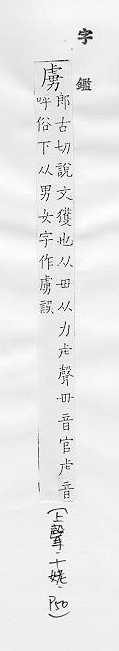 字鑑
虜
郎古切說文獲也从毌从力虍聲毌音官虍音
呼俗下从男女字作虜誤
(上聲.十姥.P50)